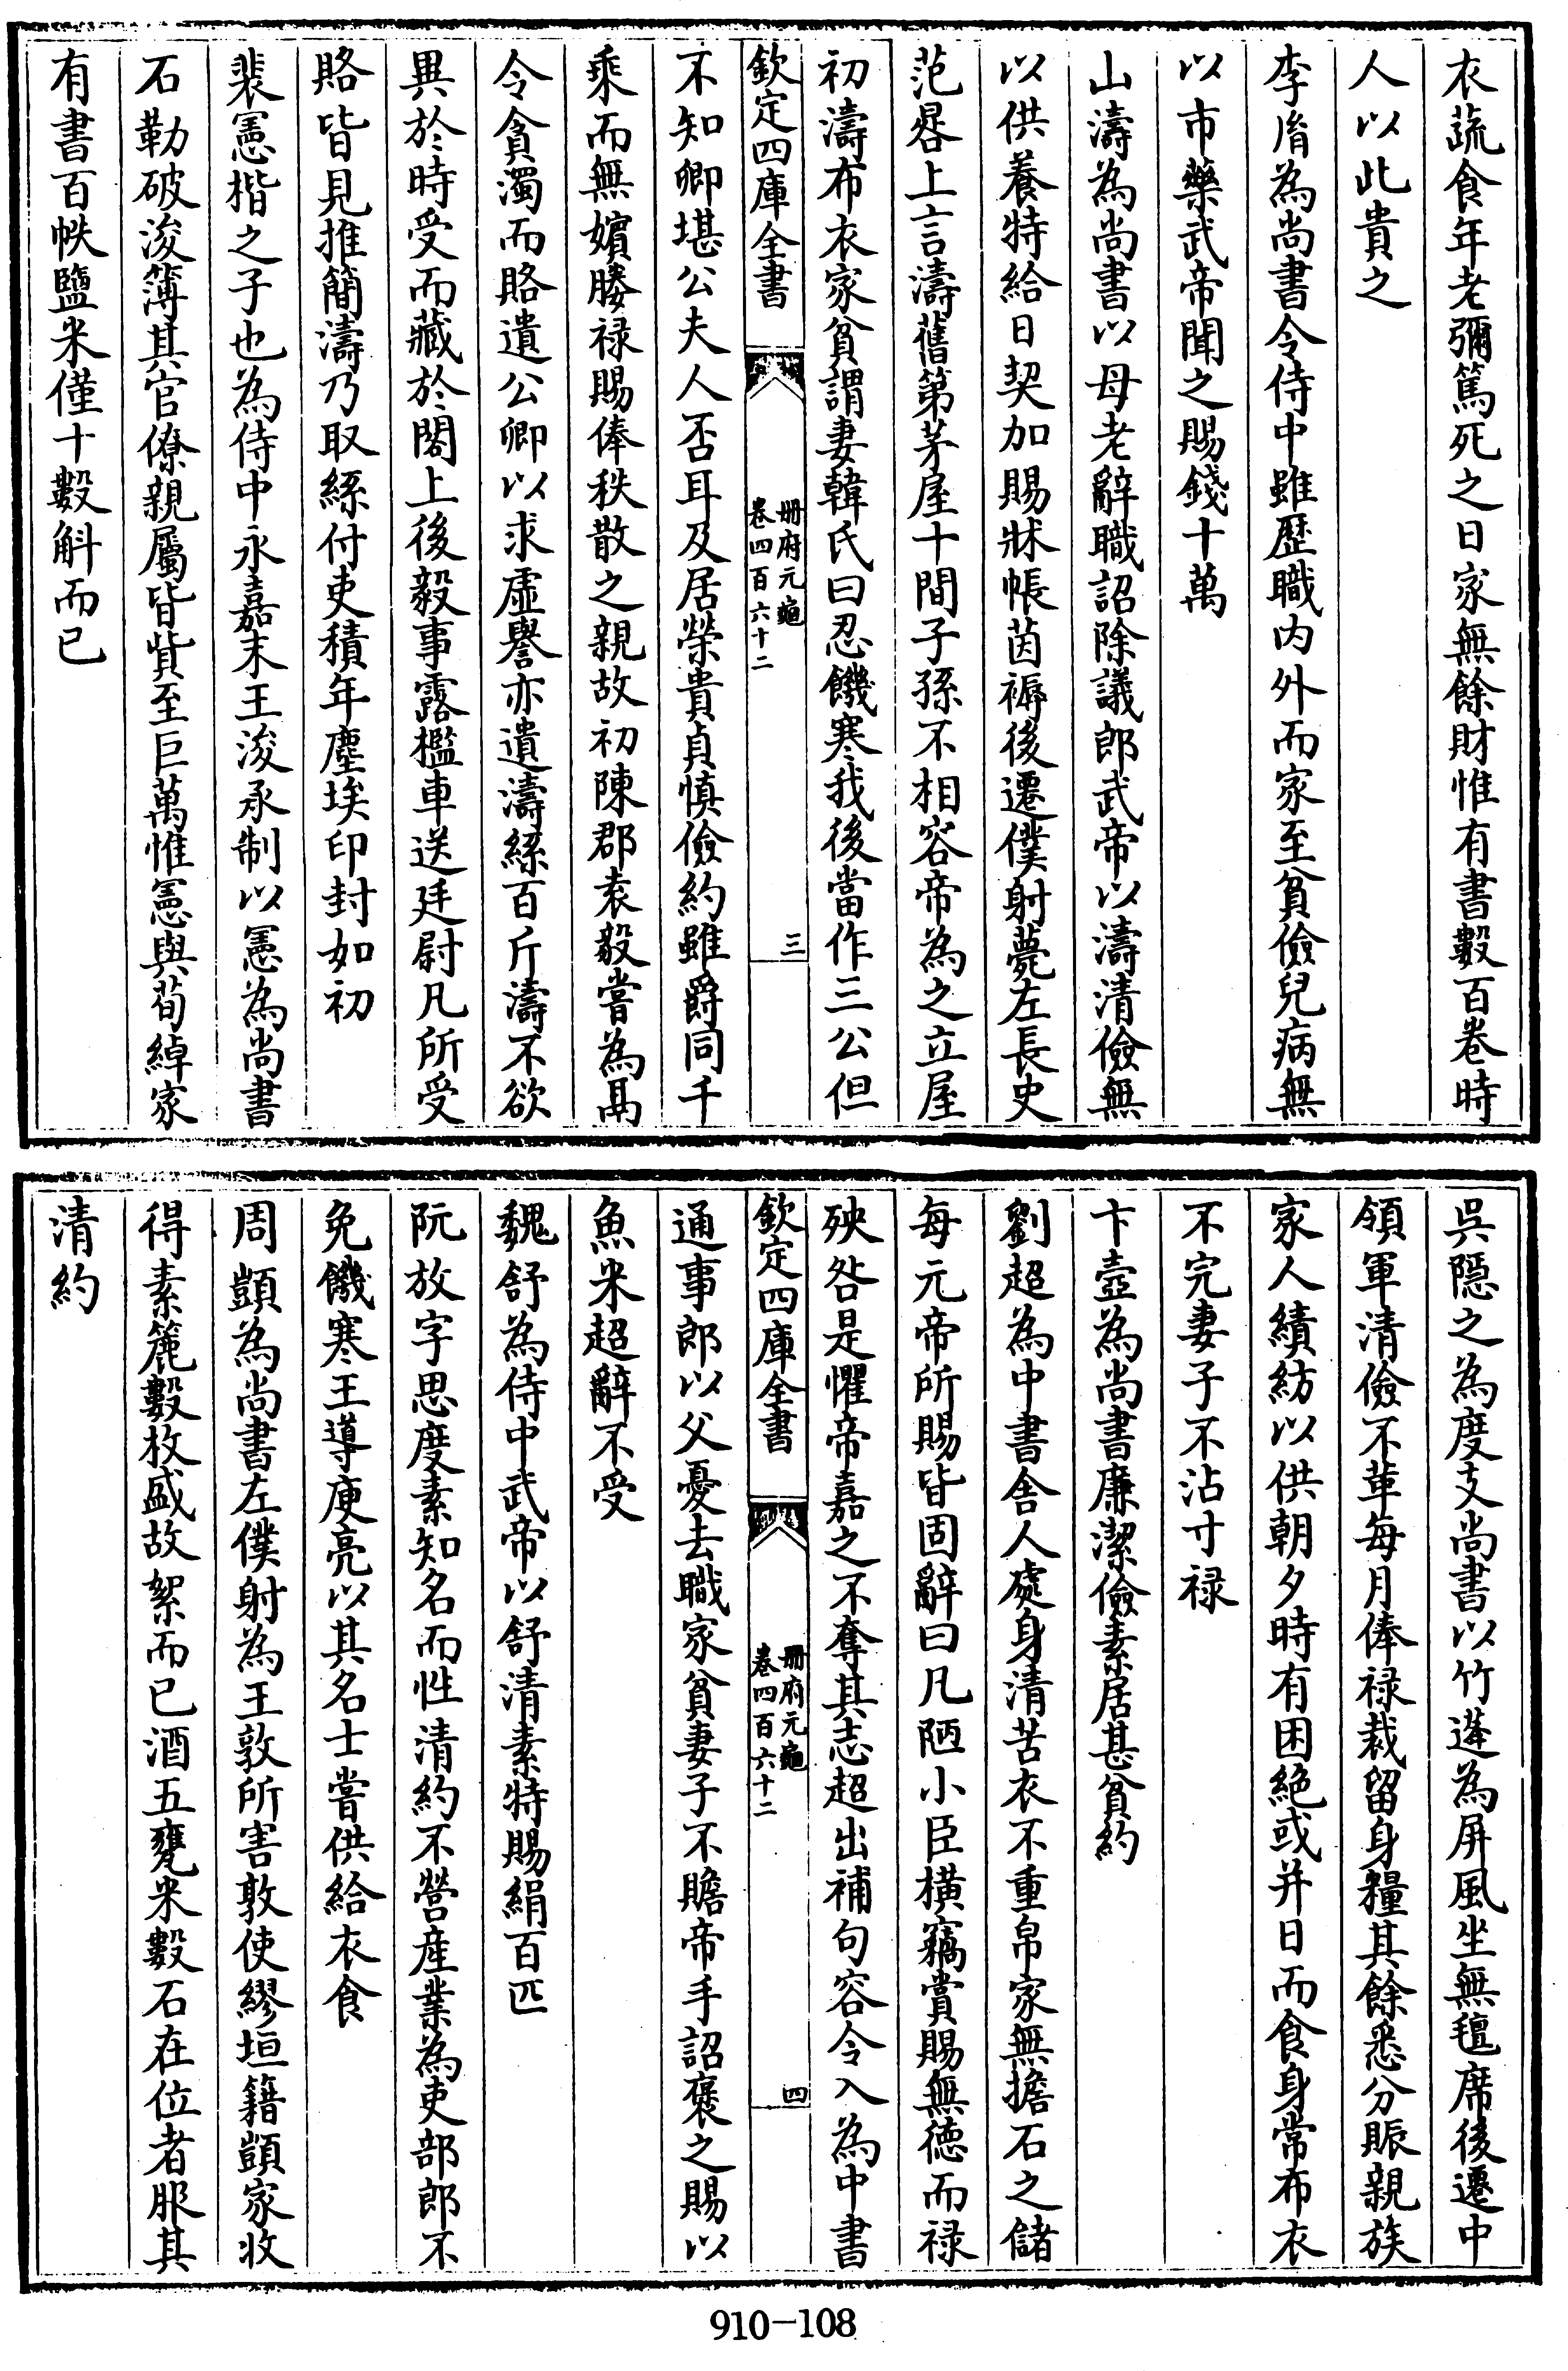 衣蔬食年老彌篤死之日家無餘財惟有書數百卷時
人以此貴之
李胤為尚書令侍中雖歴職内外而家至貧儉兒病無
以市藥武帝聞之賜錢十萬
山濤為尚書以母老辭職詔除議郎武帝以濤清儉無
以供養特給日契加賜牀帳茵褥後遷僕射薨左長史
范晷上言濤舊第茅屋十間子孫不相容帝為之立屋
初濤布衣家貧謂妻韓氏曰忍饑寒我後當作三公但
欽定四庫全書
冊府元龜
卷四百六十二
三
不知卿堪公夫人否耳及居榮貴貞慎儉約雖爵同千
乘而無嬪媵禄賜俸秩散之親故初陳郡袁毅嘗為鬲
令貪濁而賂遺公卿以求虛譽亦遺濤絲百斤濤不欲
異於時受而藏於閣上後毅事露檻車送廷尉凡所受
賂皆見推簡濤乃取絲付吏積年塵埃印封如初
裴憲楷之子也為侍中永嘉末王浚承制以憲為尚書
石勒破浚簿其官僚親屬皆貲至巨萬惟憲與荀綽家
有書百帙鹽米僅十數斛而已
吳隱之為度支尚書以竹蓬為屏風坐無氊席後遷中
領軍清儉不革每月俸禄裁留身糧其餘悉分賑親族
家人績紡以供朝夕時有困絶或并日而食身常布衣
不完妻子不沾寸禄
卞壼為尚書廉潔儉素居甚貧約
劉超為中書舍人處身清苦衣不重帛家無擔石之儲
每元帝所賜皆固辭曰凡陋小臣横竊賞賜無德而禄
殃咎是懼帝嘉之不奪其志超出補句容令入為中書
欽定四庫全書
冊府元龜
卷四百六十二
四
通事郎以父憂去職家貧妻子不贍帝手詔褒之賜以
魚米超辭不受
魏舒為侍中武帝以舒清素特賜絹百匹
阮放字思度素知名而性清約不營産業為吏部郎不
免饑寒王導庾亮以其名士嘗供給衣食
周顗為尚書左僕射為王敦所害敦使繆坦籍顗家收
得素簏數枚盛故絮而已酒五甕米數石在位者服其
清約
910-108